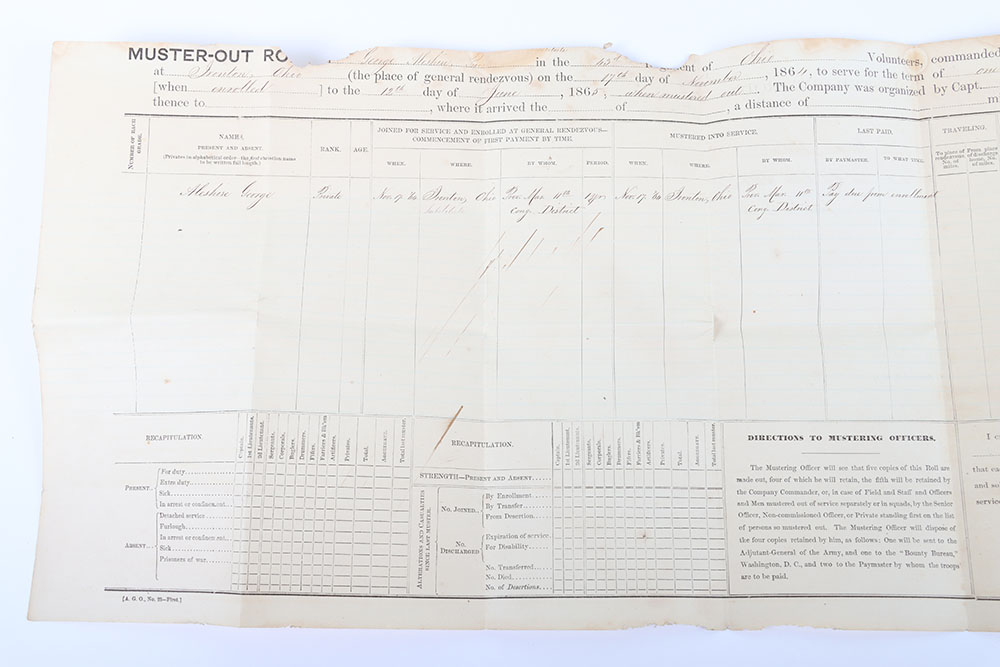 MUSTER-OUT RO
George Aleshire, in the 43d of Ohio Volunteers, commanded
at Ironton, Ohio (the place of general rendezvous) on the 17th day of November, 1864, to serve for the term of one
[when enrolled ] to the 12th day of June, 1865, when mustered out. The Company was organized by Capt.
thence to , where it arrived the of , a distance of m
NUMBER OF EACH GRADE.
NAMES,
PRESENT AND ABSENT.
(Privates in alphabetical order—the first christian name to be written full length.)
RANK.
AGE.
JOINED FOR SERVICE AND ENROLLED AT GENERAL RENDEZVOUS—
COMMENCEMENT OF FIRST PAYMENT BY TIME.
WHEN. WHERE. BY WHOM. PERIOD.
MUSTERED INTO SERVICE.
WHEN. WHERE. BY WHOM.
LAST PAID.
BY PAYMASTER. TO WHAT TIME.
TRAVELING.
To place of rendezvous, No. of miles.
From place of discharge home, No. of miles.
Aleshire George Private Nov. 17 64 Ironton, Ohio Pro Mar. 11th 1 year Nov. 17. 64 Ironton, Ohio Pro Mar. 11th Pay due from enrollment
Substitute Cong District Cong. District
RECAPITULATION.
Captain.
1st Lieutenants.
2d Lieutenant.
Sergeants.
Corporals.
Buglers.
Drummers.
Fifers.
Farriers & Bk'sm
Artificers.
Privates.
Total.
Aggregate.
Total last muster.
PRESENT
For duty
Extra duty
Sick
In arrest or confinem.ent
ABSENT
Detached service
Furlough
In arrest or confinem.ent
Sick
Prisoners of war
[A. G. O., No. 25—First.]
RECAPITULATION.
Captain.
1st Lieutenant.
2d Lieutenants.
Sergeants.
Corporals.
Buglers.
Drummers.
Fifers.
Farriers & Bk'sm
Artificers.
Privates.
Total.
Aggregate.
Total last muster.
STRENGTH—PRESENT AND ABSENT
ALTERATIONS AND CASUALTIES SINCE LAST MUSTER.
No. JOINED.
By Enrollment
By Transfer
From Desertion
No. DISCHARGED
Expiration of service
For Disability
No. Transferred
No. Died
No. of Desertions
DIRECTIONS TO MUSTERING OFFICERS.
The Mustering Officer will see that five copies of this Roll are
made out, four of which he will retain, the fifth will be retained by
the Company Commander, or, in case of Field and Staff and Officers
and Men mustered out of service separately or in squads, by the Senior
Officer, Non-commissioned Officer, or Private standing first on the list
of persons so mustered out. The Mustering Officer will dispose of
the four copies retained by him, as follows: One will be sent to the
Adjutant-General of the Army, and one to the "Bounty Bureau,"
Washington, D. C., and two to the Paymaster by whom the troops
are to be paid.
I c
that ea
and so
service